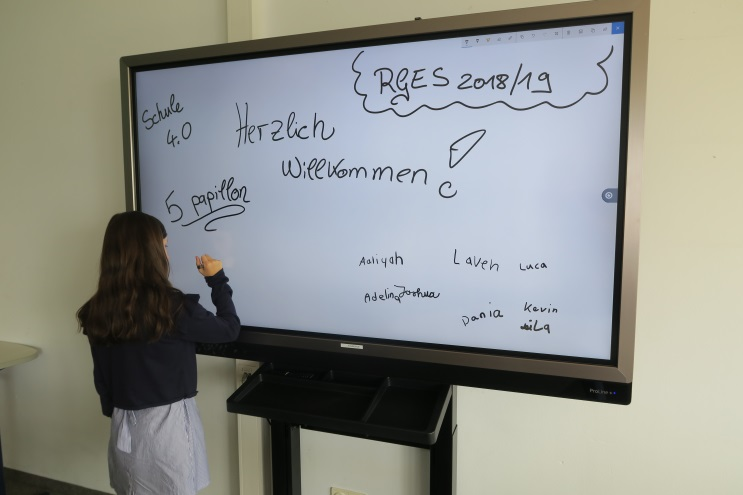 RGES 2018/19
Schule
4.0
Herzlich
Willkommen!
5 papillon
Aaliyah
Laven
Luca
Adelina
Joshua
Dania
Kevin